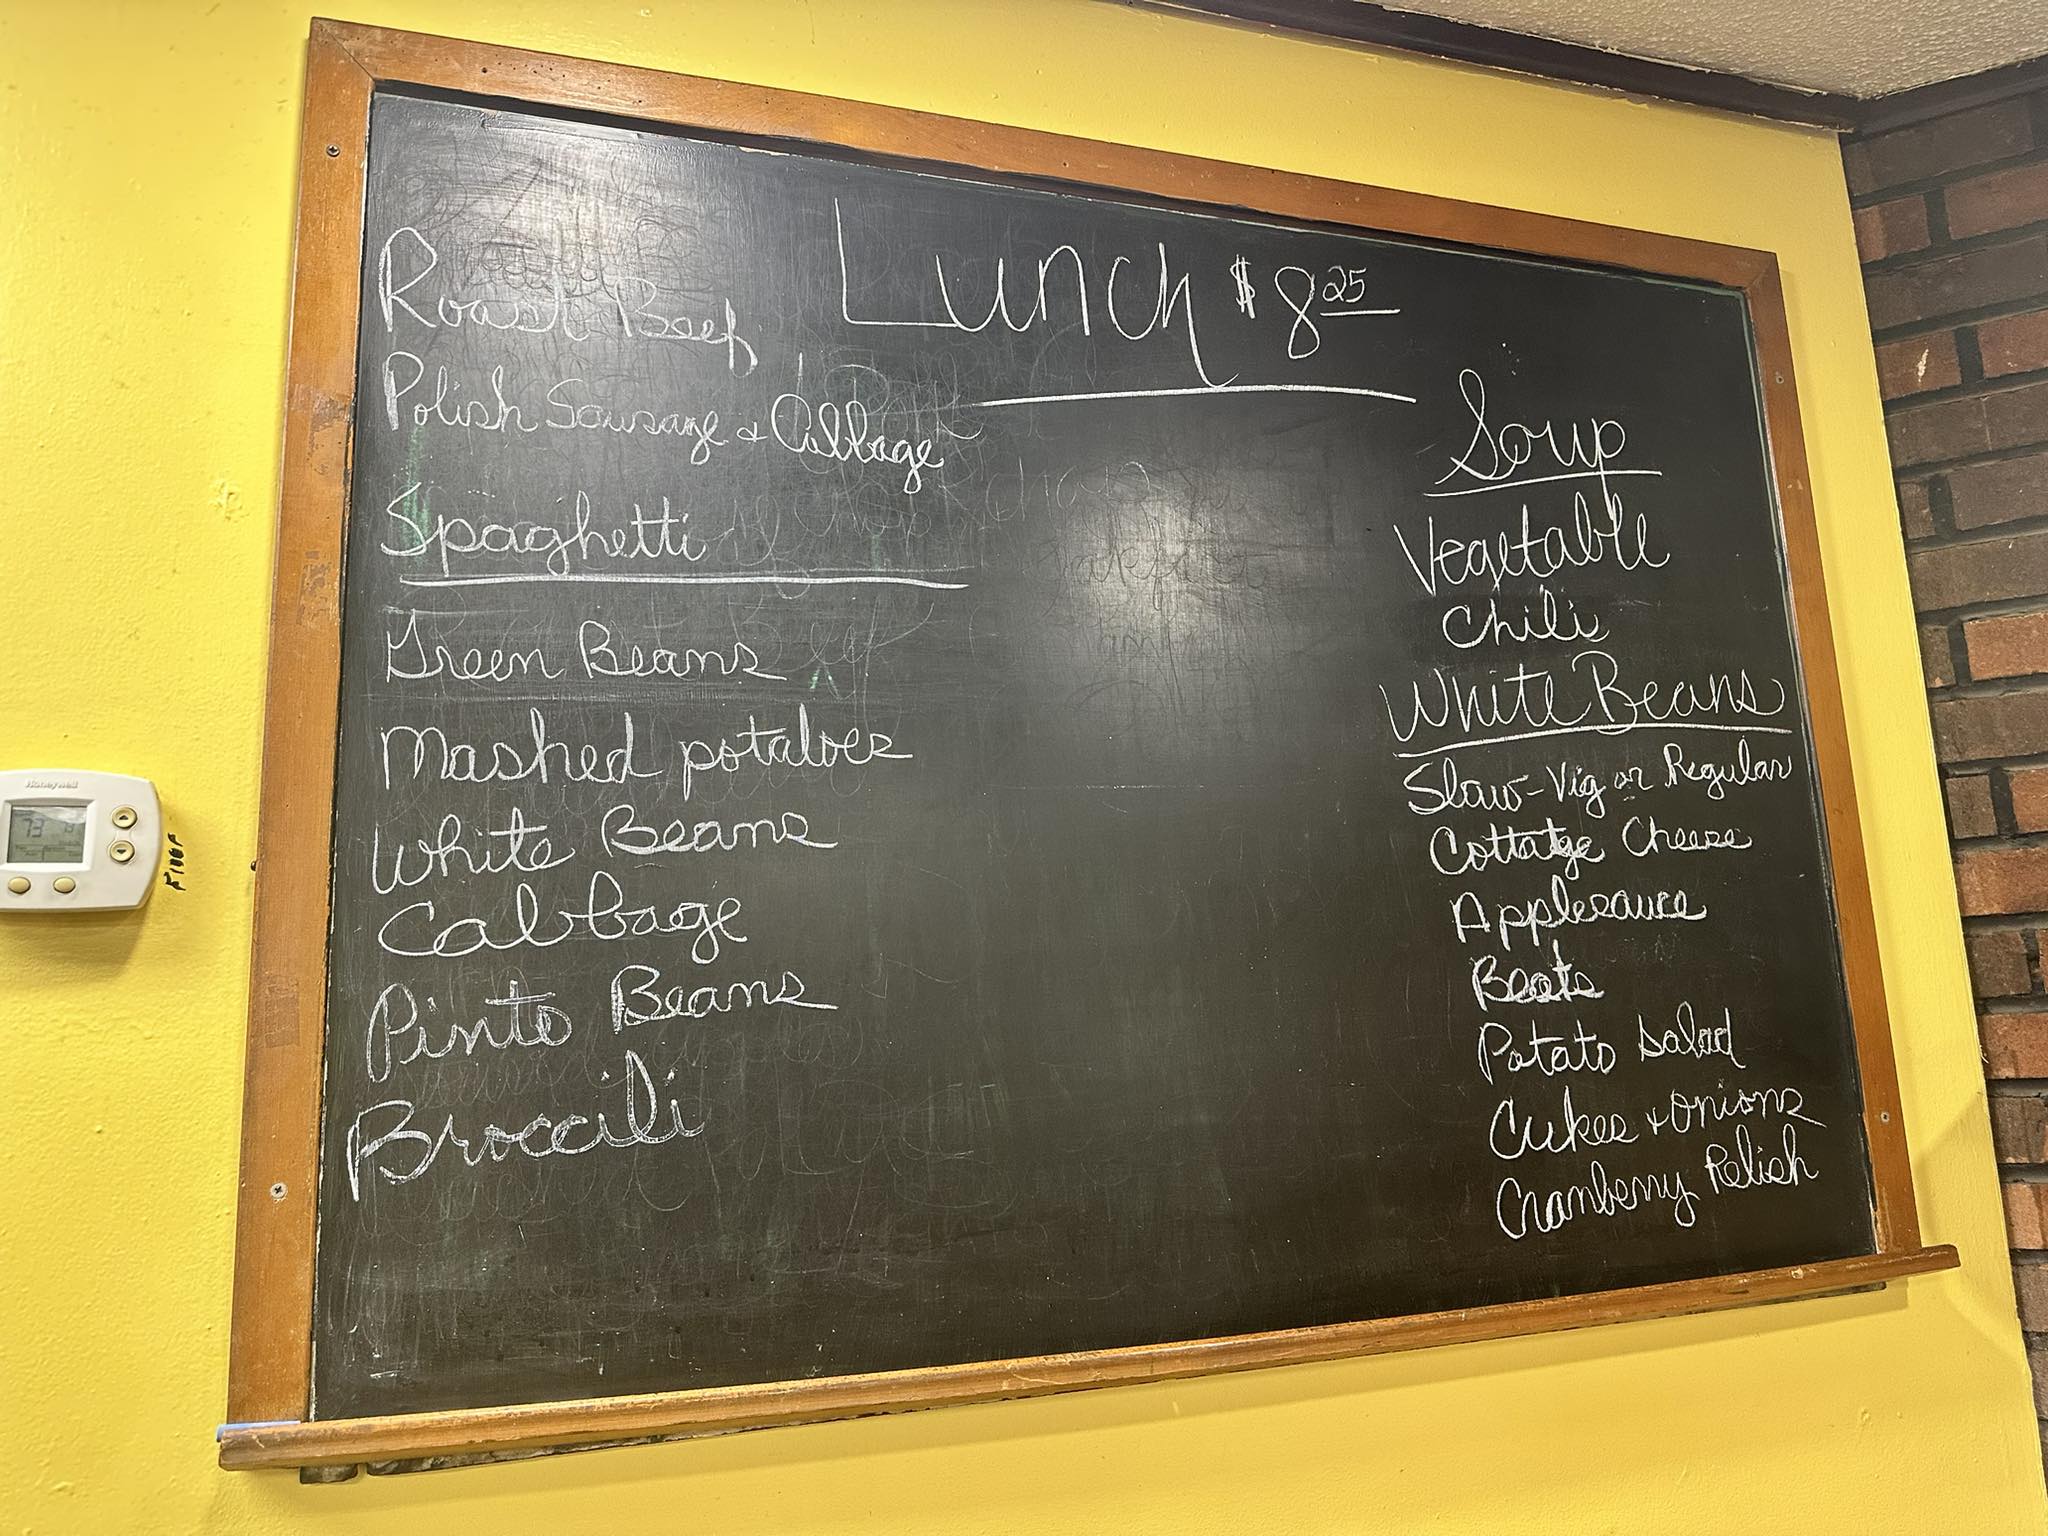 Lunch $8 25
Roast Beef
Polish Sausage & Cabbage
Spaghetti
Green Beans
Mashed potatoes
White Beans
Cabbage
Pinto Beans
Broccili
Soup
Vegetable
Chili
White Beans
Slaw-Vig or Regular
Cottatge Cheese
Applesauce
Beats
Potato salad
Cukes & Onions
Cranberry Relish
Honeywell
73